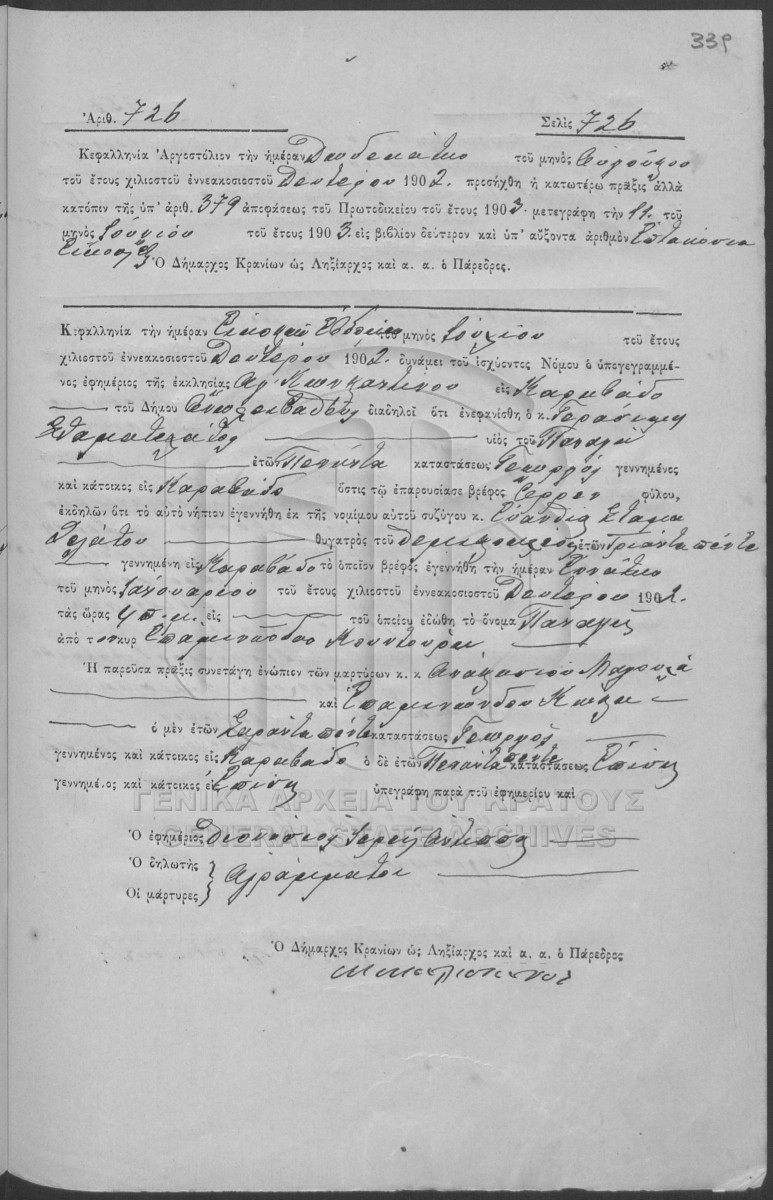 339
Ἀριθ. 726 Σελὶς 726
Κεφαλληνία Ἀργοστόλιον τὴν ἡμέραν Δωδεκάτην τοῦ μηνὸς
τοῦ ἔτους χιλιοστοῦ ἐννεακοσιοστοῦ Δευτέρου 1902. προσήχθη ἡ κατωτέρω πρᾶξις ἀλλὰ
κατόπιν τῆς ὑπ' ἀριθ. 379 ἀποφάσεως τοῦ Πρωτοδικείου τοῦ ἔτους 1903. μετεγράφη τὴν 11. τοῦ
μηνὸς Ἰουνίου τοῦ ἔτους 1903. εἰς βιβλίον δεύτερον καὶ ὑπ' αὔξοντα ἀριθμὸν Ἑπτακόσια
Εἴκοσι ἕξ Ὁ Δήμαρχος Κρανίων ὡς Ληξίαρχος καὶ α. α. ὁ Πάρεδρος.
Κεφαλληνία τὴν ἡμέραν Εἰκοστὴν Ἑβδόμην τοῦ μηνὸς τοῦ ἔτους
χιλιοστοῦ ἐννεακοσιοστοῦ Δευτέρου 1902. δυνάμει τοῦ ἰσχύοντος Νόμου ὁ ὑπογεγραμμέ-
νος ἐφημέριος τῆς ἐκκλησίας Ἁγ. Κωνσταντίνου εἰς Καραβάδο
τοῦ Δήμου διαδηλοῖ ὅτι ἐνεφανίσθη ὁ κ. Γεράσιμος
Σταματελάτος υἱὸς τοῦ Παναγῆ
ἐτῶν Πενήντα καταστάσεως Γεωργὸς γεννημένος
καὶ κάτοικος εἰς Καραβάδο ὅστις τῷ ἐπαρουσίασε βρέφος ἄρρεν φύλου,
ἐκδηλῶν ὅτι τὸ αὐτὸ νήπιον ἐγεννήθη ἐκ τῆς νομίμου αὐτοῦ συζύγου κ. Εὐανθία Σταμα
τελάτου θυγατρὸς τοῦ ἐτῶν Τριάντα πέντε
γεννημένη εἰς Καραβάδο τὸ ὁποῖον βρέφος ἐγεννήθη τὴν ἡμέραν Ἐννάτην
τοῦ μηνὸς Ἰανουαρίου τοῦ ἔτους χιλιοστοῦ ἐννεακοσιοστοῦ Δευτέρου 1902.
τὰς ὥρας 4 π.μ. εἰς τοῦ ὁποίου ἐδώθη τὸ ὄνομα Παναγῆς
ἀπὸ τὸν κυρ Ἐπαμεινώνδαν
Ἡ παροῦσα πρᾶξις συνετάγη ἐνώπιον τῶν μαρτύρων κ. κ Ἀναστασίου Μαρουλᾶ
καὶ Ἐπαμεινώνδου
ὁ μὲν ἐτῶν Σαράντα πέντε καταστάσεως Γεωργὸς
γεννημένος καὶ κάτοικος εἰς Καραβάδο ὁ δὲ ἐτῶν Πενήντα πέντε καταστάσεως Ἐπίσης
γεννημένος καὶ κάτοικος εἰς Ἐπίσης ὑπεγράφη παρὰ τοῦ ἐφημερίου καὶ
ΓΕΝΙΚΑ ΑΡΧΕΙΑ ΤΟΥ ΚΡΑΤΟΥΣ
GENERAL STATE ARCHIVES
Ὁ ἐφημέριος Διονύσιος Ἱερεὺς
Ὁ δηλωτὴς
Οἱ μάρτυρες
Ἀγράμματοι
Ὁ Δήμαρχος Κρανίων ὡς Ληξίαρχος καὶ α. α. ὁ Πάρεδρος